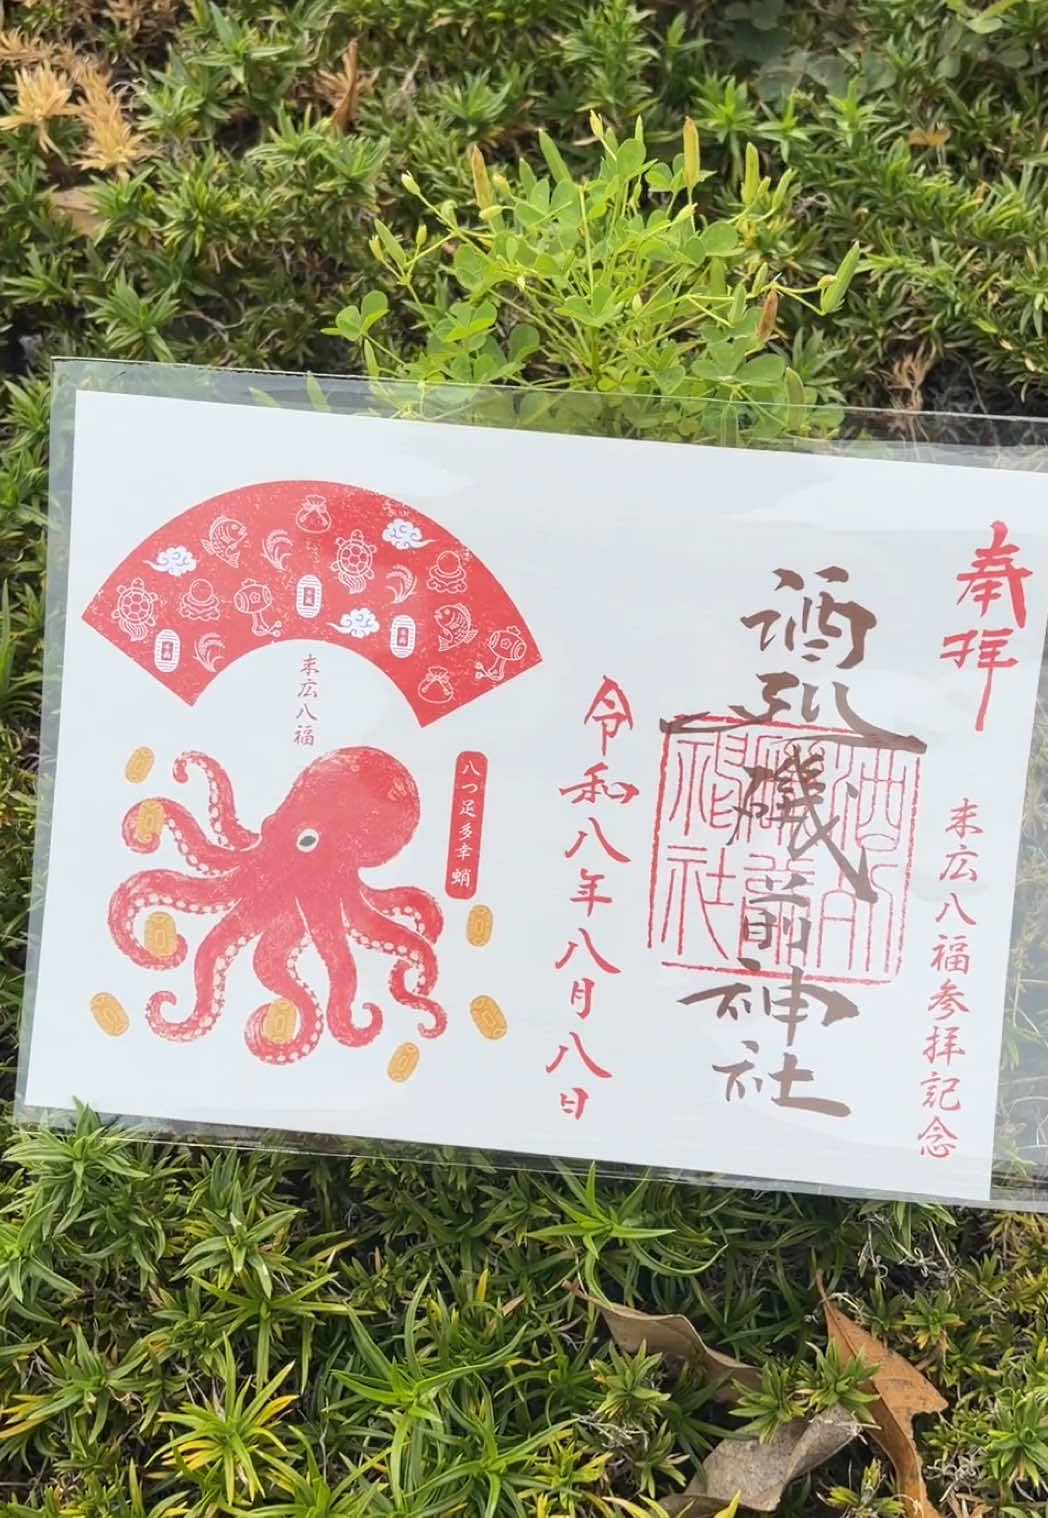 奉拝
末広八福参拝記念
酒列磯前神社
酒列磯前神社
令和八年八月八日
末広八福
八つ足多幸蛸